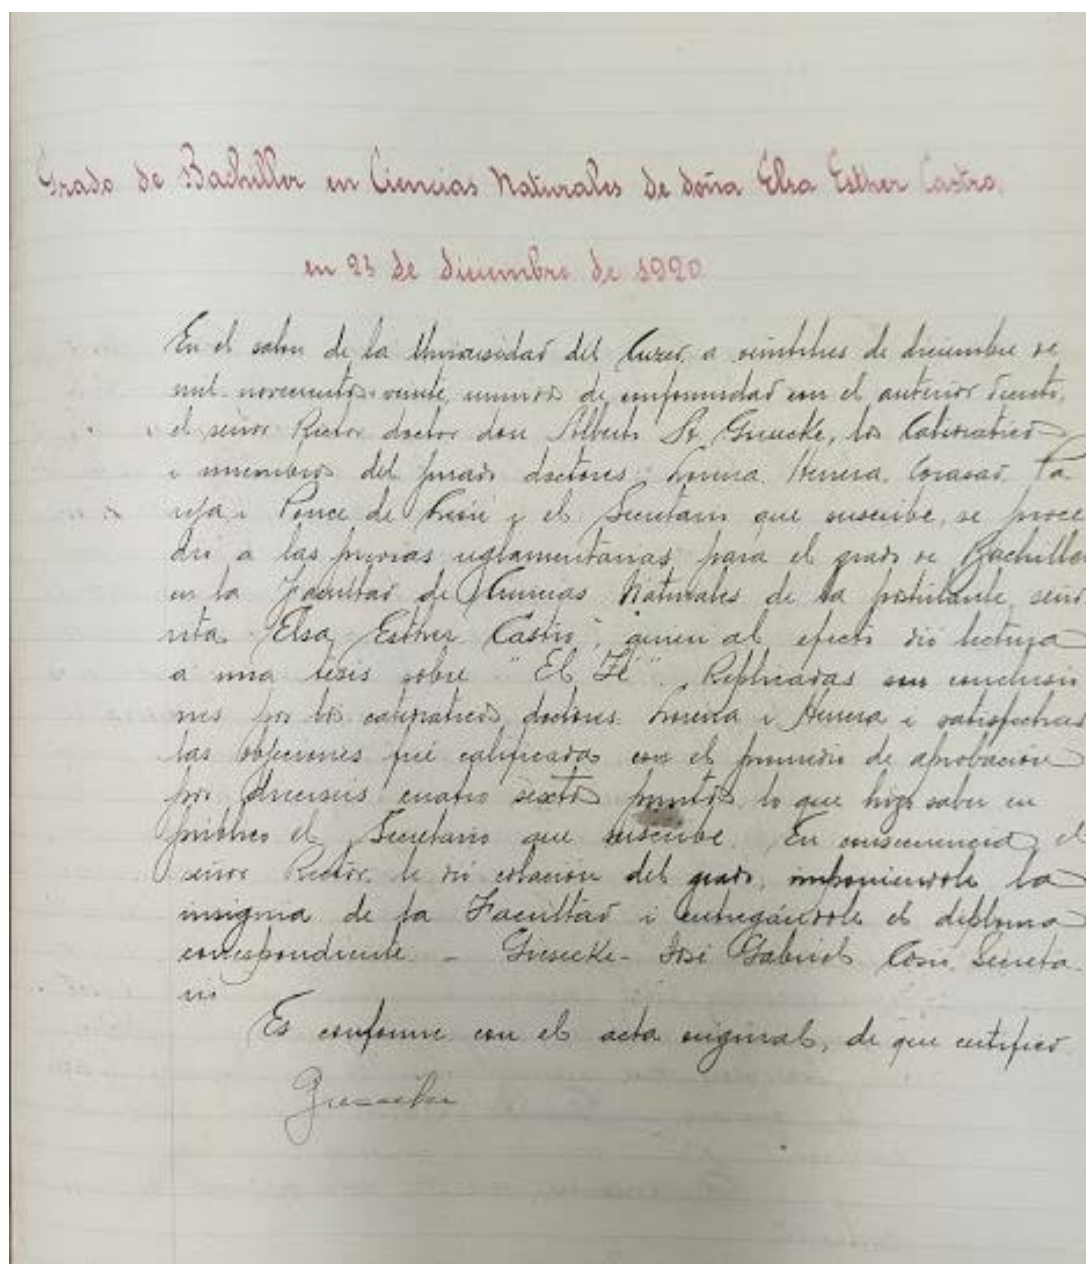 Grado de Bachiller en Ciencias Naturales de doña Elsa Esther Castro.
en 23 de diciembre de 1920
En el salon de la Universidad del Cuzco, a veintitres de diciembre de
mil novecientos veinte, reunidos de conformidad con el anterior decreto,
el señor Rector doctor don Alberto A. Giesecke, los Catedraticos
i miembros del jurado doctores: Lorena, Herrera, Corazao, Pa-
reja i Ponce de León i el Secretario que suscribe, se proce
dió a las pruevas reglamentarias para el grado de Bachiller
en la Facultad de Ciencias Naturales de la postulante, seño
rita "Elsa Esther Castro", quien al efecto dió lectura
a una tesis sobre "El Té". Replicadas sus conclusio
nes por los catedraticos, doctores Lorena i Herrera i satisfechas
las objeciones fué calificada con el promedio de aprobación
por dieciseis cuatro sextos puntos, lo que hizo saber en
público el Secretario que suscribe. En consecuencia, el
señor Rector le dió colación del grado, imponiendole la
insignia de la Facultad i entregándole el diploma
correspondiente. - Giesecke - José Gabriel Cosio. Secreta-
rio
Es conforme con el acta original, de que certifico.
Giesecke